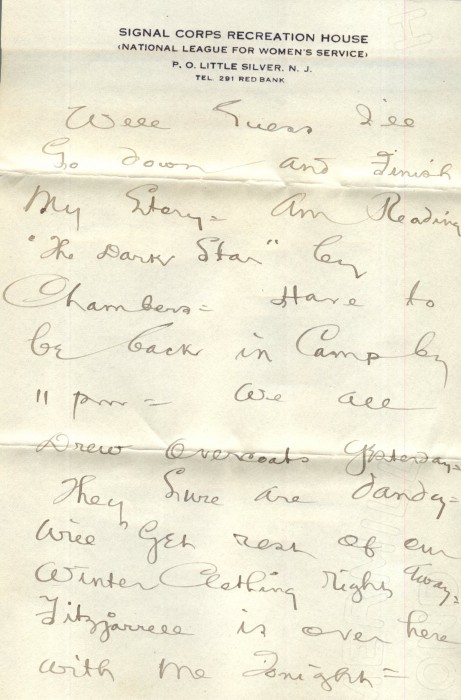 SIGNAL CORPS RECREATION HOUSE
(NATIONAL LEAGUE FOR WOMEN'S SERVICE)
P. O. LITTLE SILVER, N. J.
TEL. 291 RED BANK
Well Guess I'll
Go down and Finish
My Story = Am Reading
"The Dark Star" by
Chambers = Have to
be back in Camp by
11 pm = We all
Drew Overcoats Yesterday =
They Sure are dandy =
Will Get rest of our
Winter Clothing right away =
Fitzjarrell is over here
with me Tonight =